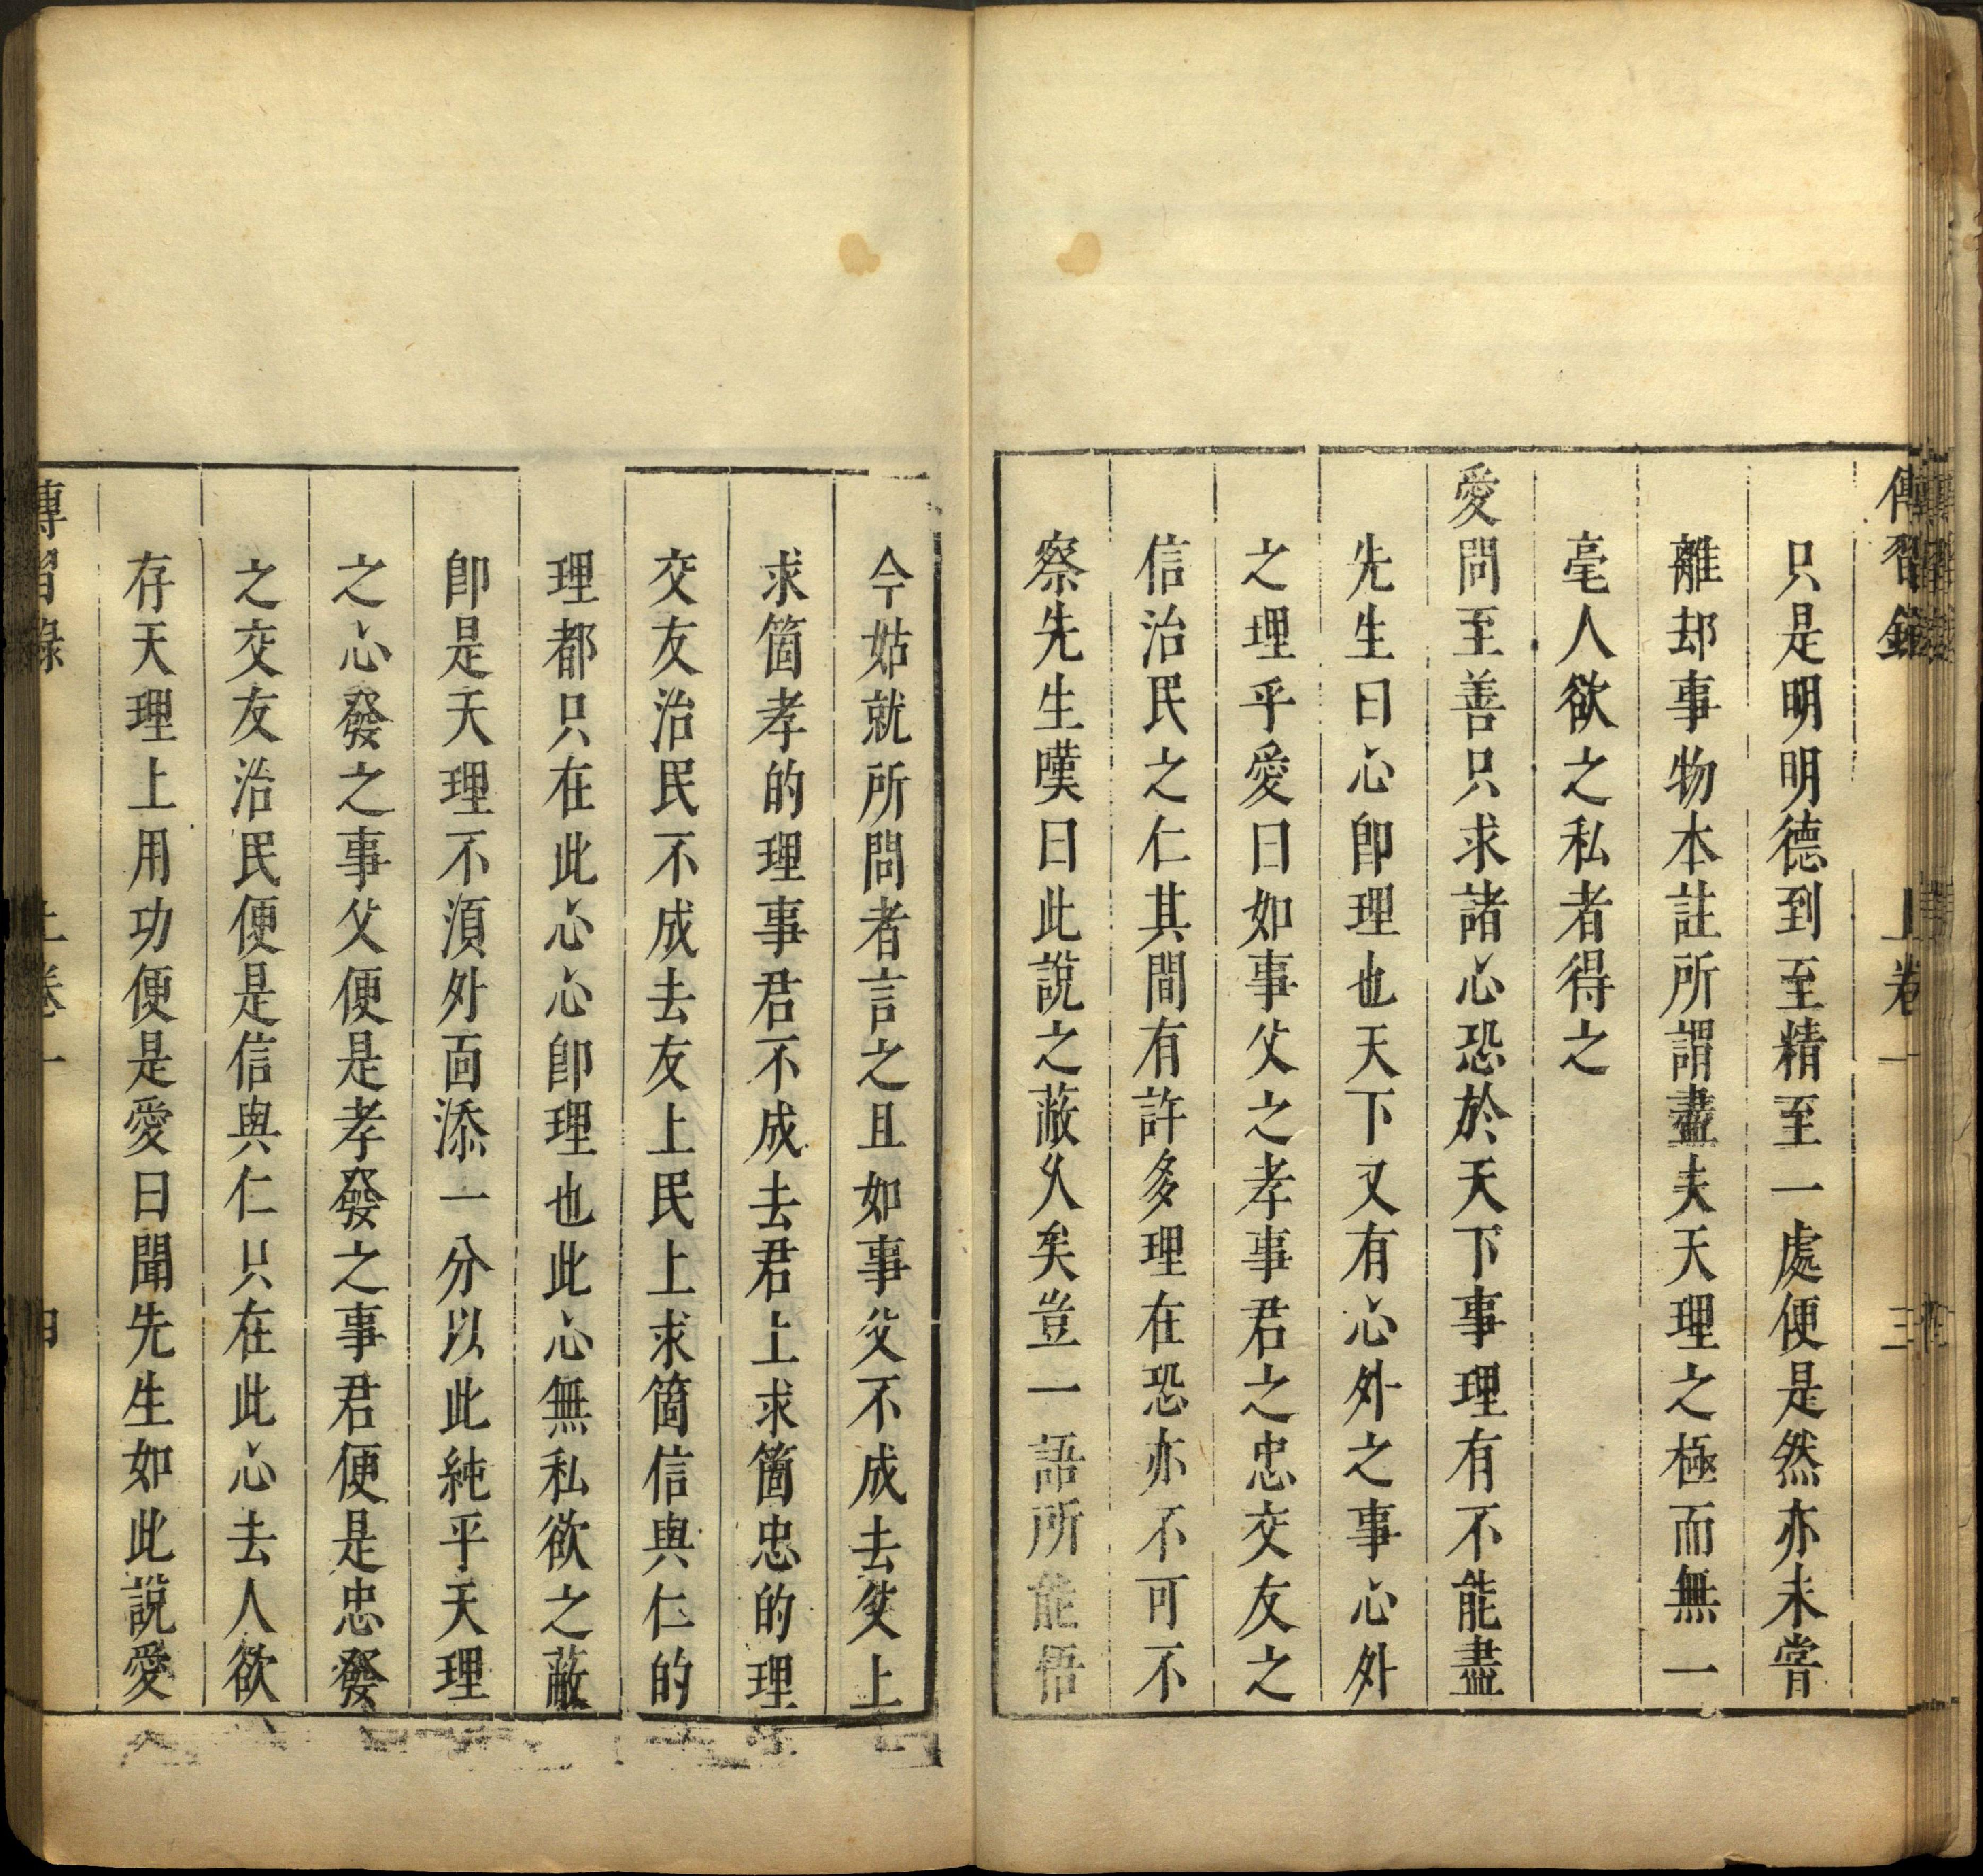 傳習錄 上卷一 三
只是明明德到至精至一處便是然亦未嘗
離却事物本註所謂盡夫天理之極而無一
毫人欲之私者得之
愛問至善只求諸心恐於天下事理有不能盡
先生曰心卽理也天下又有心外之事心外
之理乎愛曰如事父之孝事君之忠交友之
信治民之仁其間有許多理在恐亦不可不
察先生嘆曰此說之蔽久矣豈一語所能悟
今姑就所問者言之且如事父不成去父上
求箇孝的理事君不成去君上求箇忠的理
交友治民不成去友上民上求箇信與仁的
理都只在此心心卽理也此心無私欲之蔽
卽是天理不須外面添一分以此純乎天理
之心發之事父便是孝發之事君便是忠發
之交友治民便是信與仁只在此心去人欲
存天理上用功便是愛曰聞先生如此說愛
傳習錄 上卷一 四